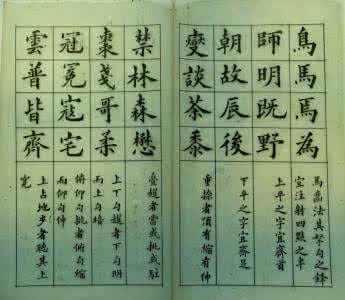 鳥馬焉為
馬齒法其努勾之鋒
宜注射四點之半
師明既野
上平之字宜齊首
朝故辰後
下平之字宜齊足
燮談茶黍
重捺者須有縮有伸
禁林森懋
疊趯者或挑或駐
棗戔哥柔
上下勾趯者下勾明
而上勾暗
冠冕寇宅
俯仰勾挑者俯勾縮
而仰勾伸
雲普皆齊
上占地步者聽其上
寬